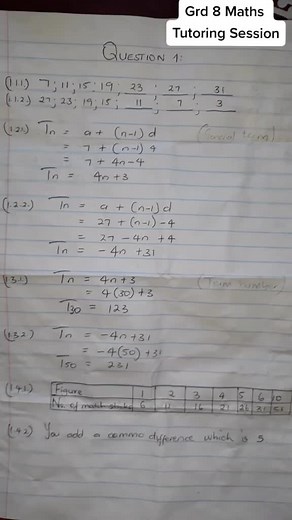 Grd 8 Maths
Tutoring Session
QUESTION 1:
(1.1.1) 7; 11; 15; 19; 23; 27; 31
(1.1.2) 27; 23; 19; 15; 11; 7; 3
(1.2.1) Tn = a + (n-1) d
= 7 + (n-1) 4
= 7 + 4n - 4
Tn = 4n + 3
(1.2.2) Tn = a + (n-1) d
= 27 + (n-1) -4
= 27 - 4n + 4
Tn = -4n + 31
(1.3.1) Tn = 4n + 3
= 4(30) + 3
T30 = 123
(1.3.2) Tn = -4n + 31
= -4(50) + 31
T50 = 231
(1.4.1) Figure 1 2 3 4 5 6 10
No. of match sticks 6 11 16 21 26 31 51
(1.4.2) You add a commo difference which is 5